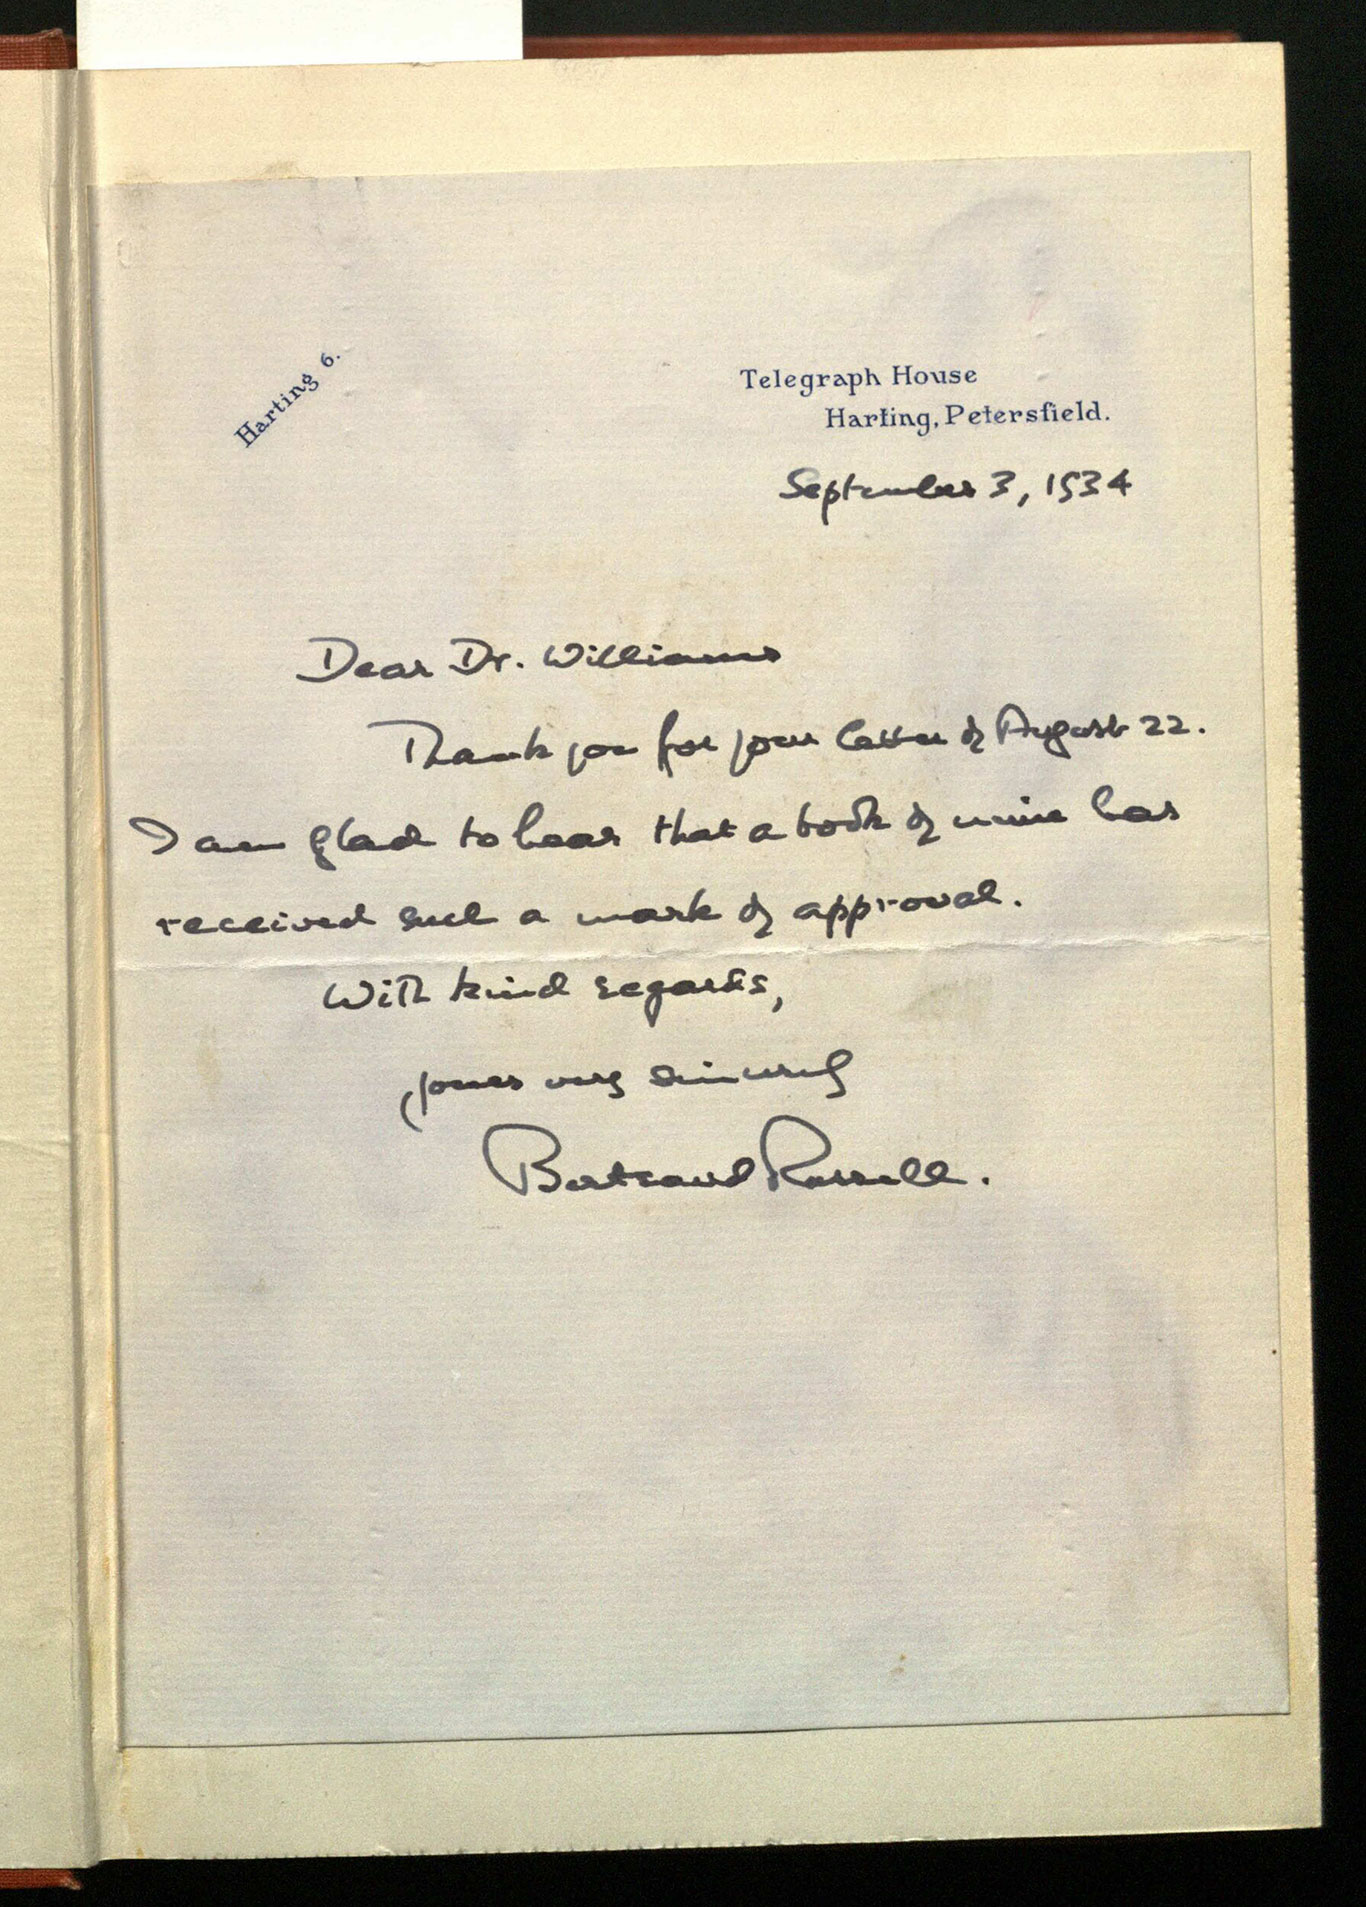 Harting 6.
Telegraph House
Harting, Petersfield.
September 3, 1934
Dear Dr. Williams
Thank you for your letter of August 22.
I am glad to hear that a book of mine has
received such a mark of approval.
With kind regards,
yours very sincerely
Bertrand Russell.